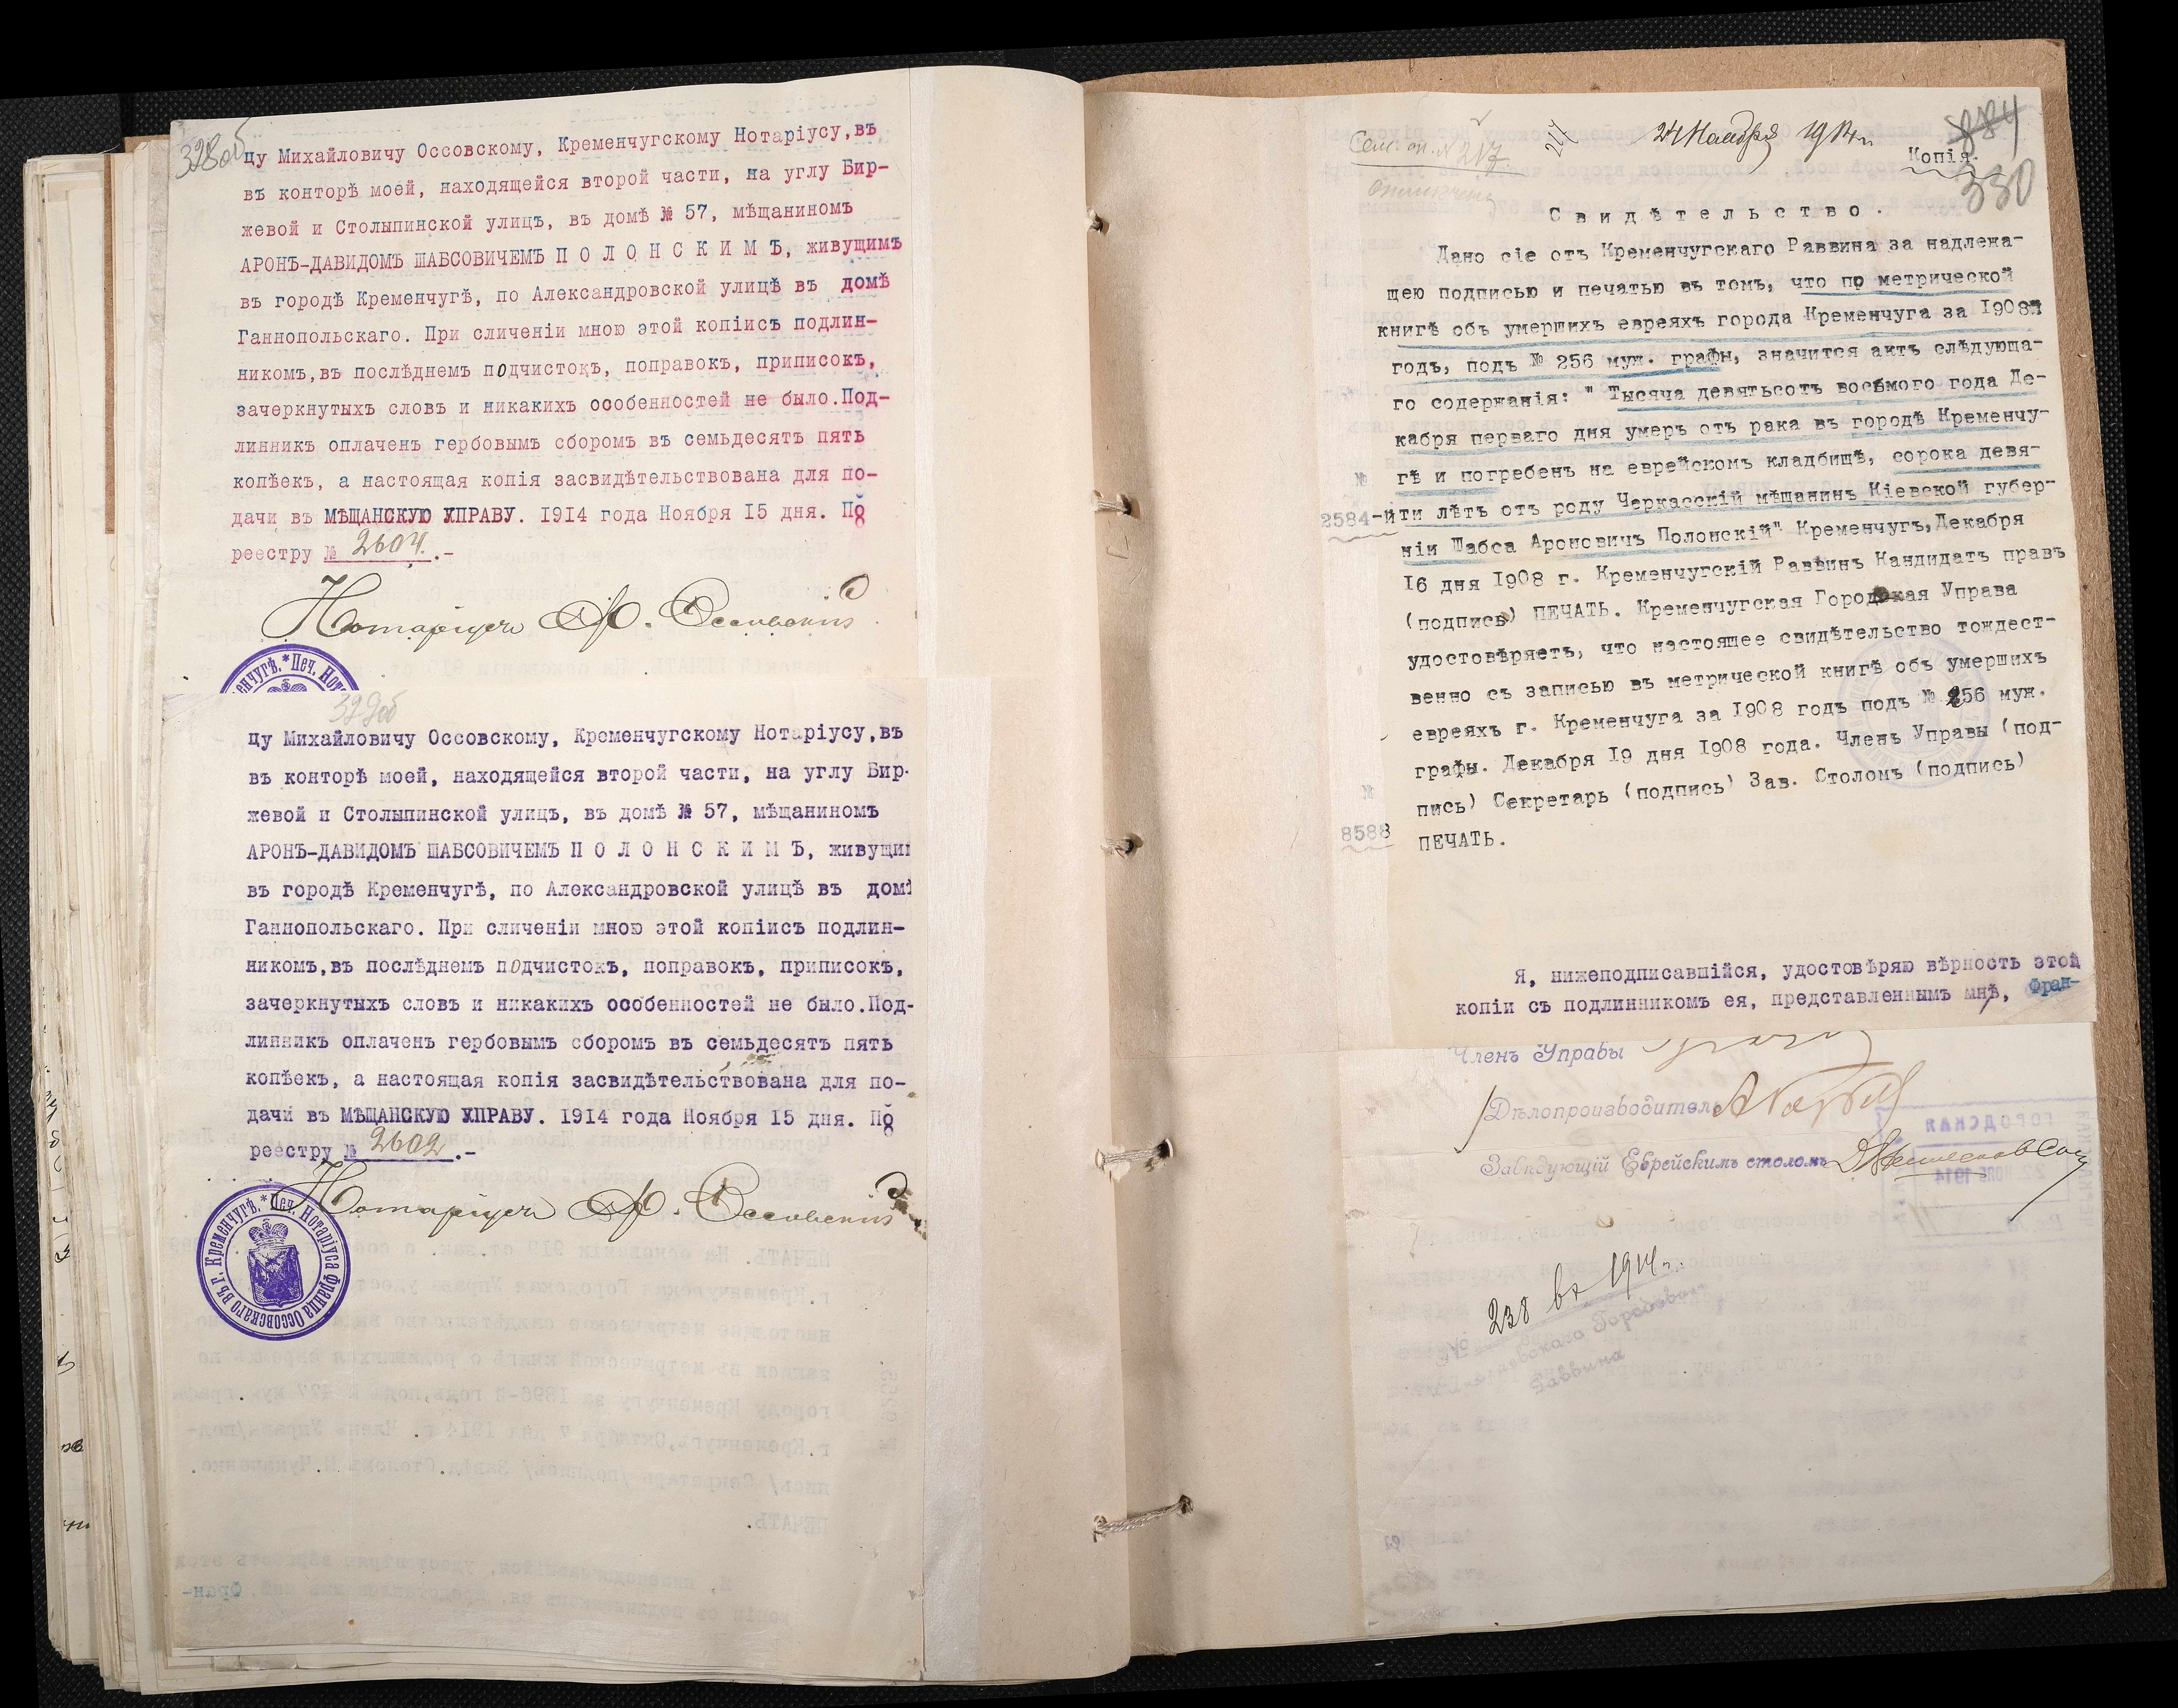 328об
цу Михайловичу Оссовскому, Кременчугскому Нотаріусу,въ
въ конторѣ моей, находящейся второй части, на углу Бир-
жевой и Столыпинской улицъ, въ домѣ № 57, мѣщаниномъ
АРОНЪ-ДАВИДОМЪ ШАБСОВИЧЕМЪ П О Л О Н С К И М Ъ, живущимъ
въ городѣ Кременчугѣ, по Александровской улицѣ въ домѣ
Ганнопольскаго. При сличеніи мною этой копіисъ подлин-
никомъ,въ послѣднемъ подчистокъ, поправокъ, приписокъ,
зачеркнутыхъ словъ и никакихъ особенностей не было.Под-
линникъ оплаченъ гербовымъ сборомъ въ семьдесятъ пять
копѣекъ, а настоящая копія засвидѣтельствована для по-
дачи въ МѢЩАНСКУЮ УПРАВУ. 1914 года Ноября 15 дня. По
реестру № 2604.-
Нотаріусъ Ф. Оссовскій
*Печ. Нот
329об
цу Михайловичу Оссовскому, Кременчугскому Нотаріусу,въ
въ конторѣ моей, находящейся второй части, на углу Бир-
жевой и Столыпинской улицъ, въ домѣ № 57, мѣщаниномъ
АРОНЪ-ДАВИДОМЪ ШАБСОВИЧЕМЪ П О Л О Н С К И М Ъ, живущи
въ городѣ Кременчугѣ, по Александровской улицѣ въ дом
Ганнопольскаго. При сличеніи мною этой копіисъ подлин-
никомъ,въ послѣднемъ подчистокъ, поправокъ, приписокъ,
зачеркнутыхъ словъ и никакихъ особенностей не было.Под-
линникъ оплаченъ гербовымъ сборомъ въ семьдесятъ пять
копѣекъ, а настоящая копія засвидѣтельствована для по-
дачи въ МѢЩАНСКУЮ УПРАВУ. 1914 года Ноября 15 дня. По
реестру № 2602.-
Нотаріусъ Ф. Оссовскій
*Печ. Нотаріуса Франца Оссовскаго въ г. Кременчугѣ.
Сем. оп. № 217. 217 24 Ноября 1914 г. 884
Копія.
330
С в и д ѣ т е л ь с т в о .
Дано сіе отъ Кременчугскаго Раввина за надлежа-
щею подписью и печатью въ томъ, что по метрической
книгѣ объ умершихъ евреяхъ города Кременчуга за 1908й
годъ, подъ № 256 муж. графы, значится актъ слѣдующа-
го содержанія: " Тысяча девятьсотъ восьмого года Де-
кабря перваго дня умеръ отъ рака въ городѣ Кременчу-
№ гѣ и погребенъ на еврейскомъ кладбищѣ, сорока девя-
2584-й ти лѣтъ отъ роду Черкасскій мѣщанинъ Кіевской губер-
ніи Шабса Ароновичъ Полонскій" Кременчугъ,Декабря
16 дня 1908 г. Кременчугскій Раввинъ Кандидатъ правъ
(подпись) ПЕЧАТЬ. Кременчугская Городская Управа
удостовѣряетъ, что настоящее свидѣтельство тождест-
венно съ записью въ метрической книгѣ объ умершихъ
евреяхъ г. Кременчуга за 1908 годъ подъ № 256 муж.
графы. Декабря 19 дня 1908 года. Членъ Управы (под-
№ пись) Секретарь (подпись) Зав. Столомъ (подпись)
8588 ПЕЧАТЬ.
Я, нижеподписавшійся, удостовѣряю вѣрность этой
копіи съ подлинникомъ ея, представленнымъ мнѣ, Фран-
Членъ Управы
Дѣлопроизводитель
Завѣдующій Еврейскимъ столомъ
238 въ 1914 г.
Раввина